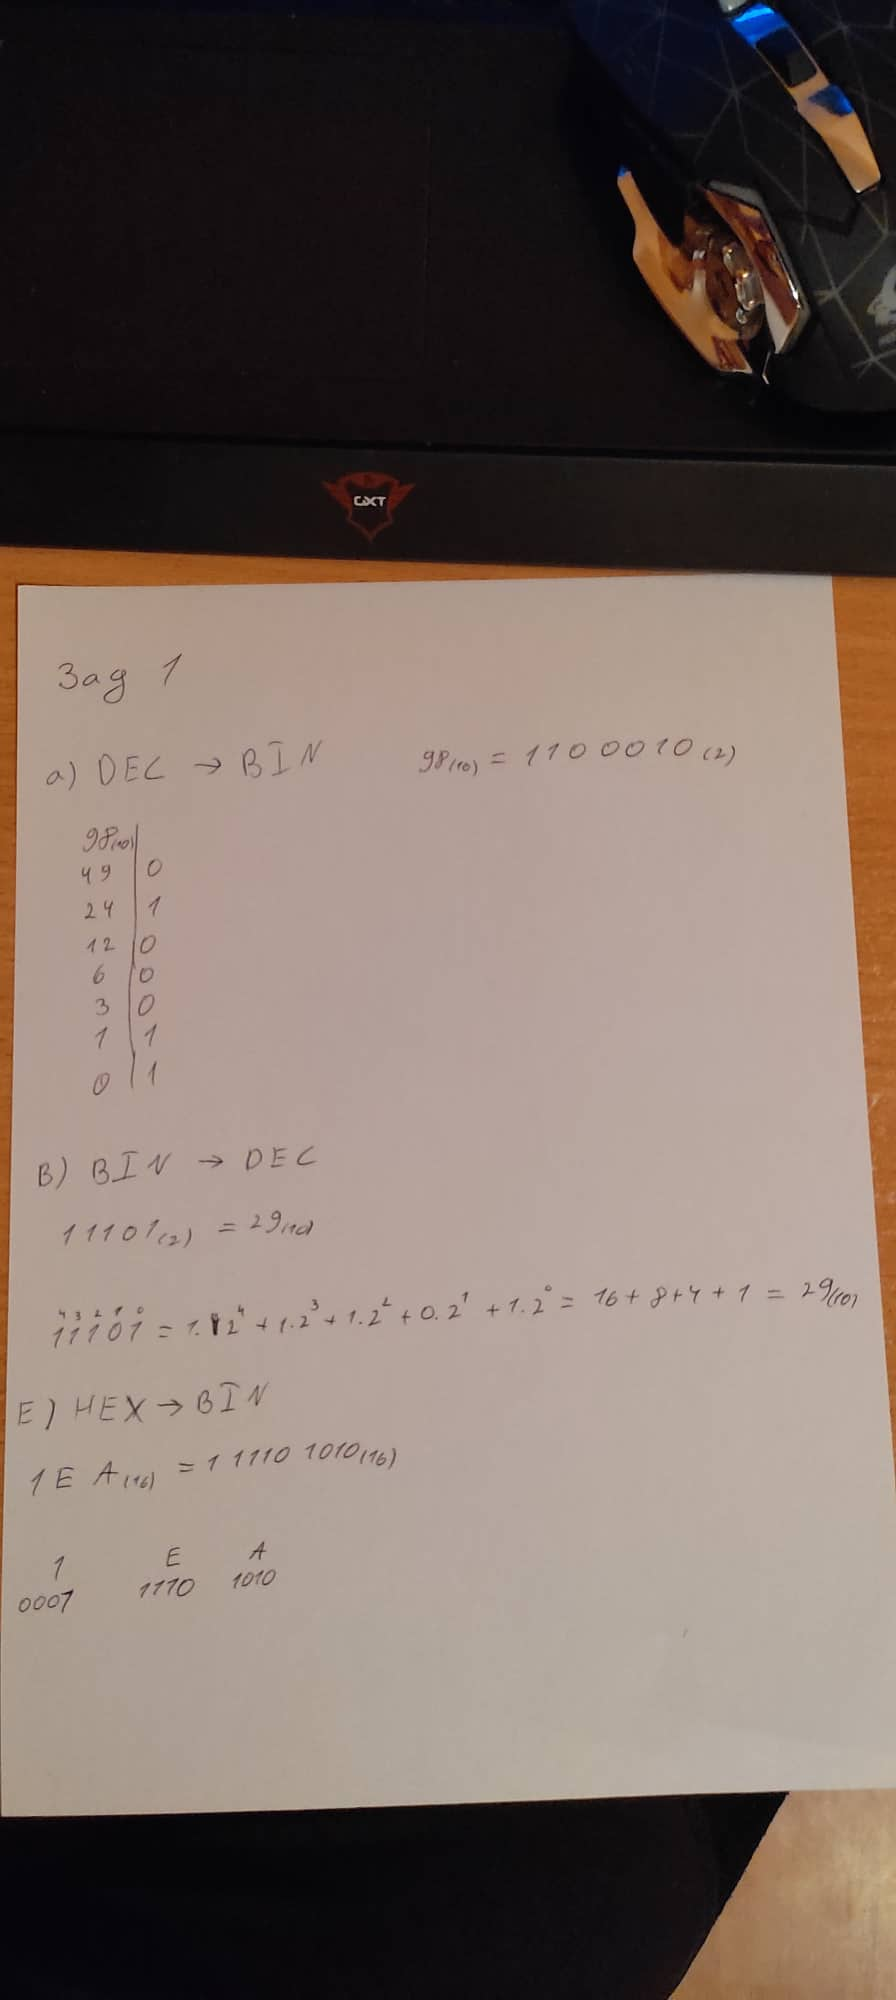 GXT
Зад 1
a) DEC → BIN 98(10) = 1100010(2)
98(10)
49 | 0
24 | 1
12 | 0
6 | 0
3 | 0
1 | 1
0 | 1
B) BIN → DEC
11101(2) = 29(10)
4 3 2 1 0
11101 = 1.2⁴ + 1.2³ + 1.2² + 0.2¹ + 1.2⁰ = 16 + 8 + 4 + 1 = 29(10)
E) HEX → BIN
1 E A(16) = 1 1110 1010(16)
1 E A
0001 1110 1010